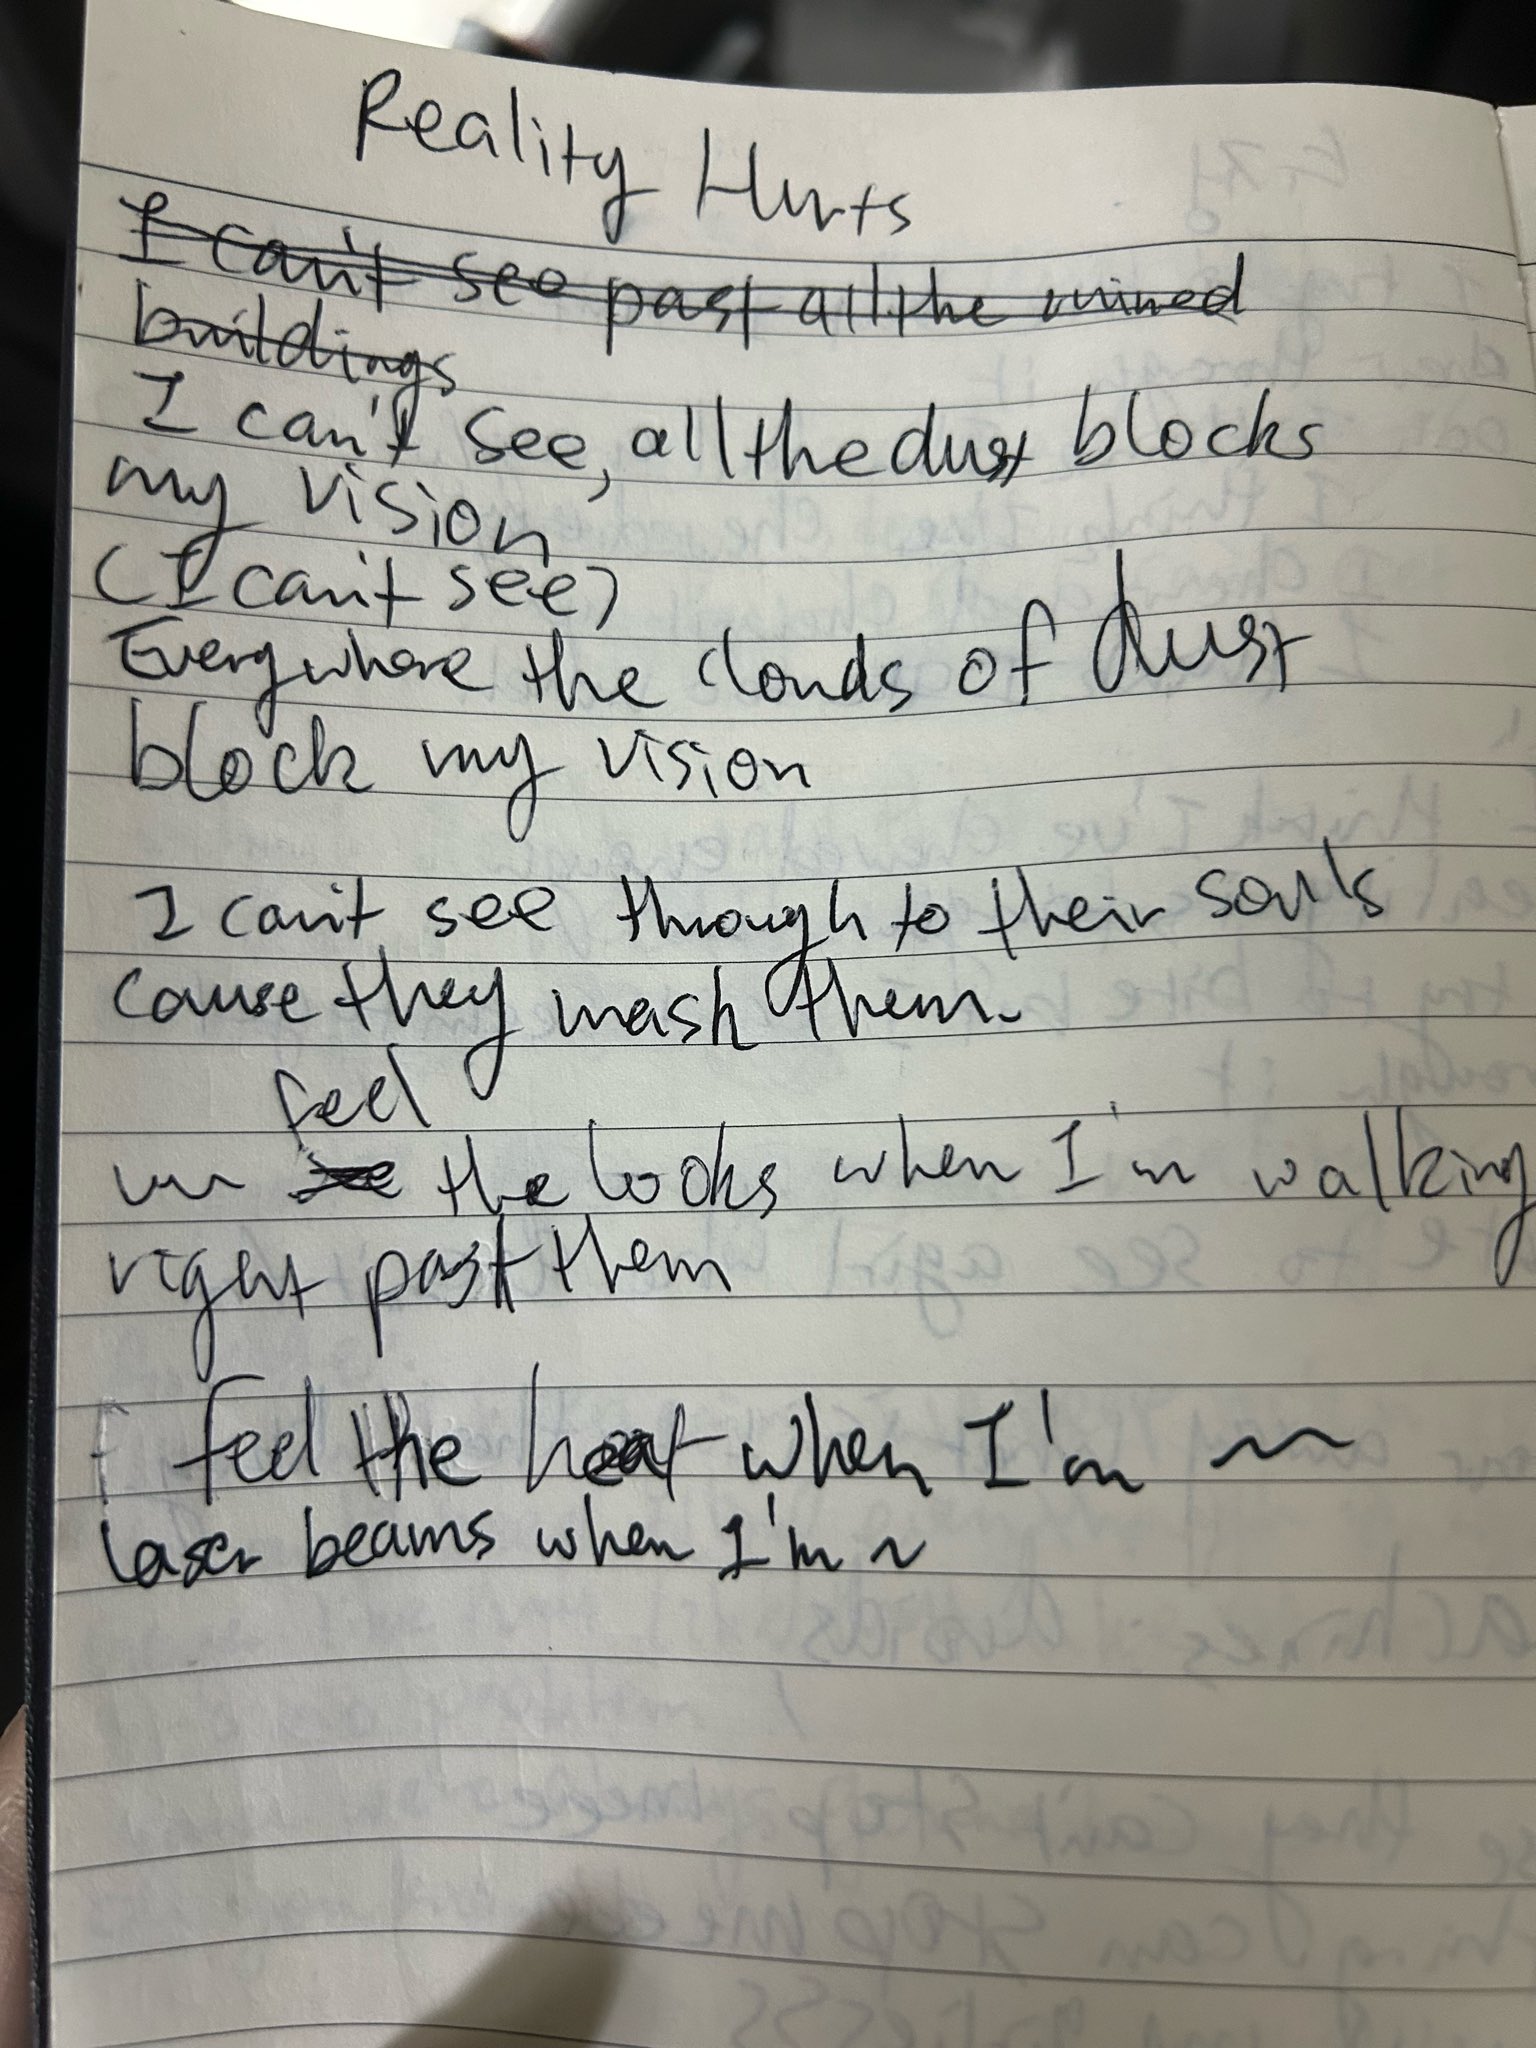 Reality Hurts
I can't see past all the ruined
buildings
I can't see, all the dust blocks
my vision
(I can't see)
Everywhere the clouds of dust
block my vision
I can't see through to their souls
cause they mask them.
feel
see the looks when I'm walking
right past them
I feel the heat when I'm ~
laser beams when I'm ~